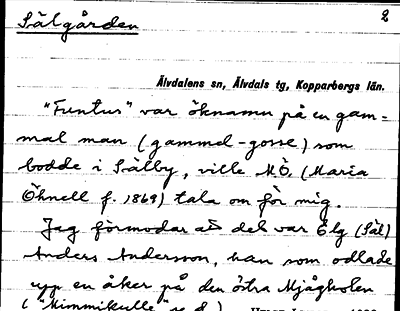 Sälgården
2
Älvdalens sn, Älvdals tg, Kopparbergs län.
"Funtus" var öknamn på en gam-
mal man (gammel-gosse) som
bodde i Sälby, ville M.Ö. (Maria
Öhnell f. 1869) tala om för mig.
Jag förmodar att det var Elg (Säl)
Anders Andersson, han som odlade
upp en åker på den östra Mjågholen
("Kimmikulle"